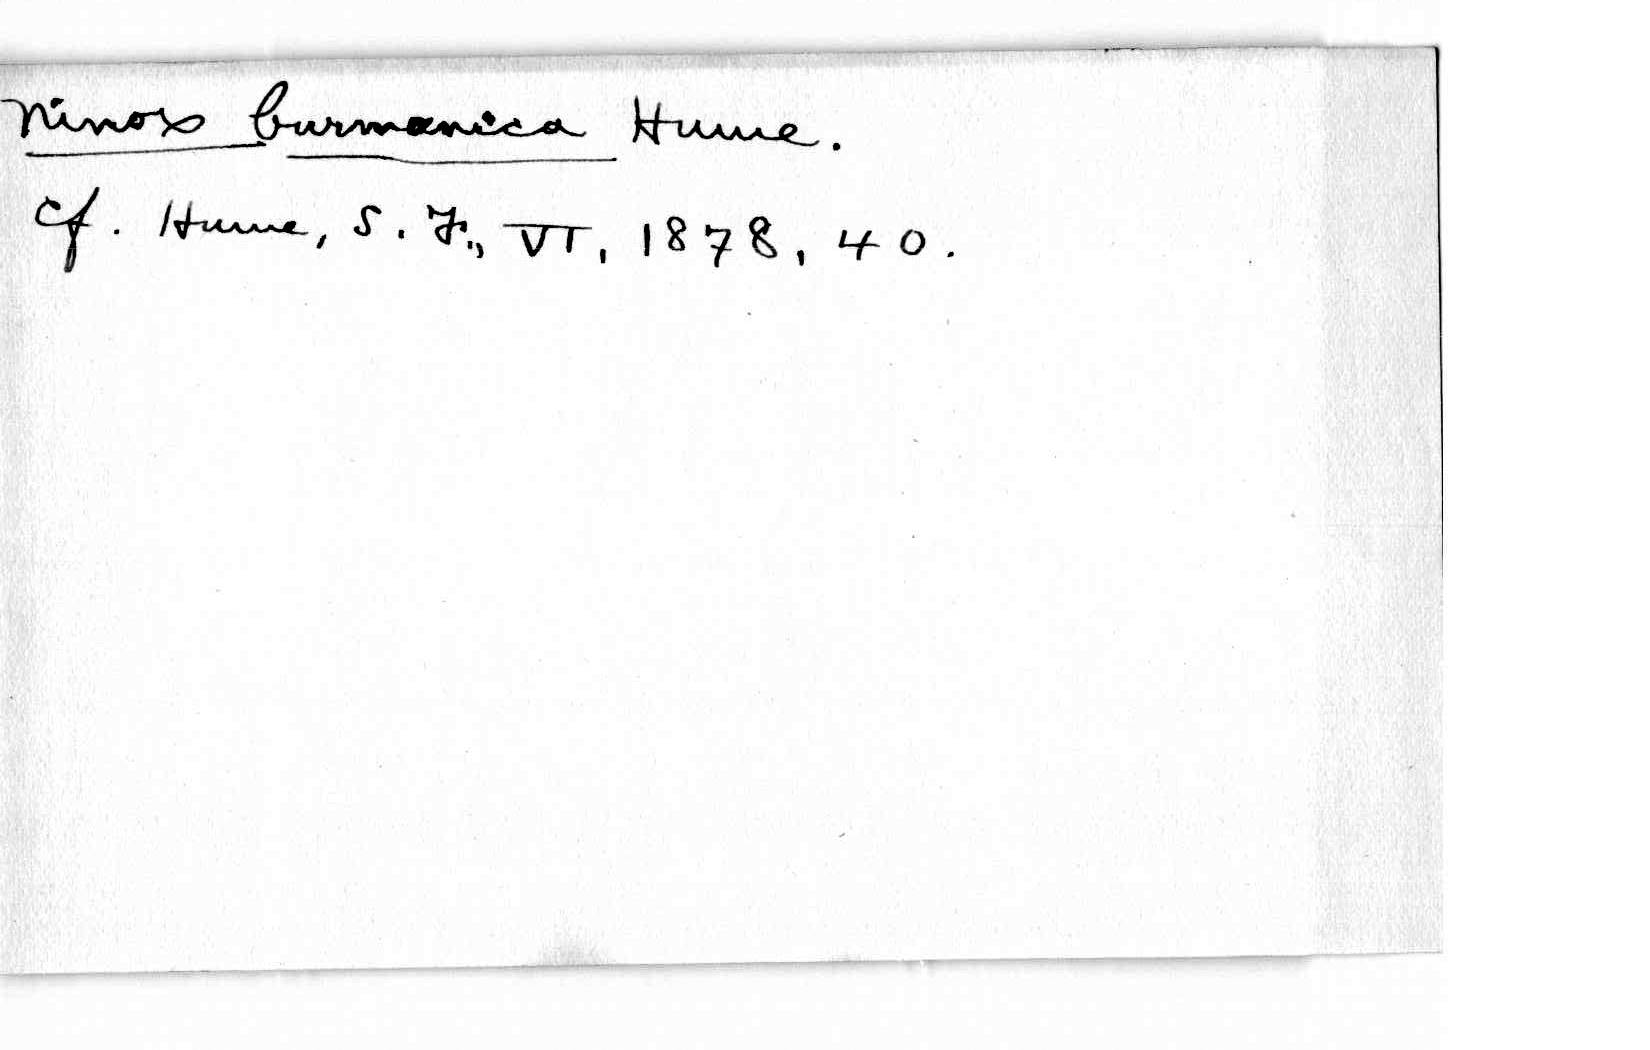 Ninox burmanica Hume.
cf. Hume, S. F., VI, 1878, 40.